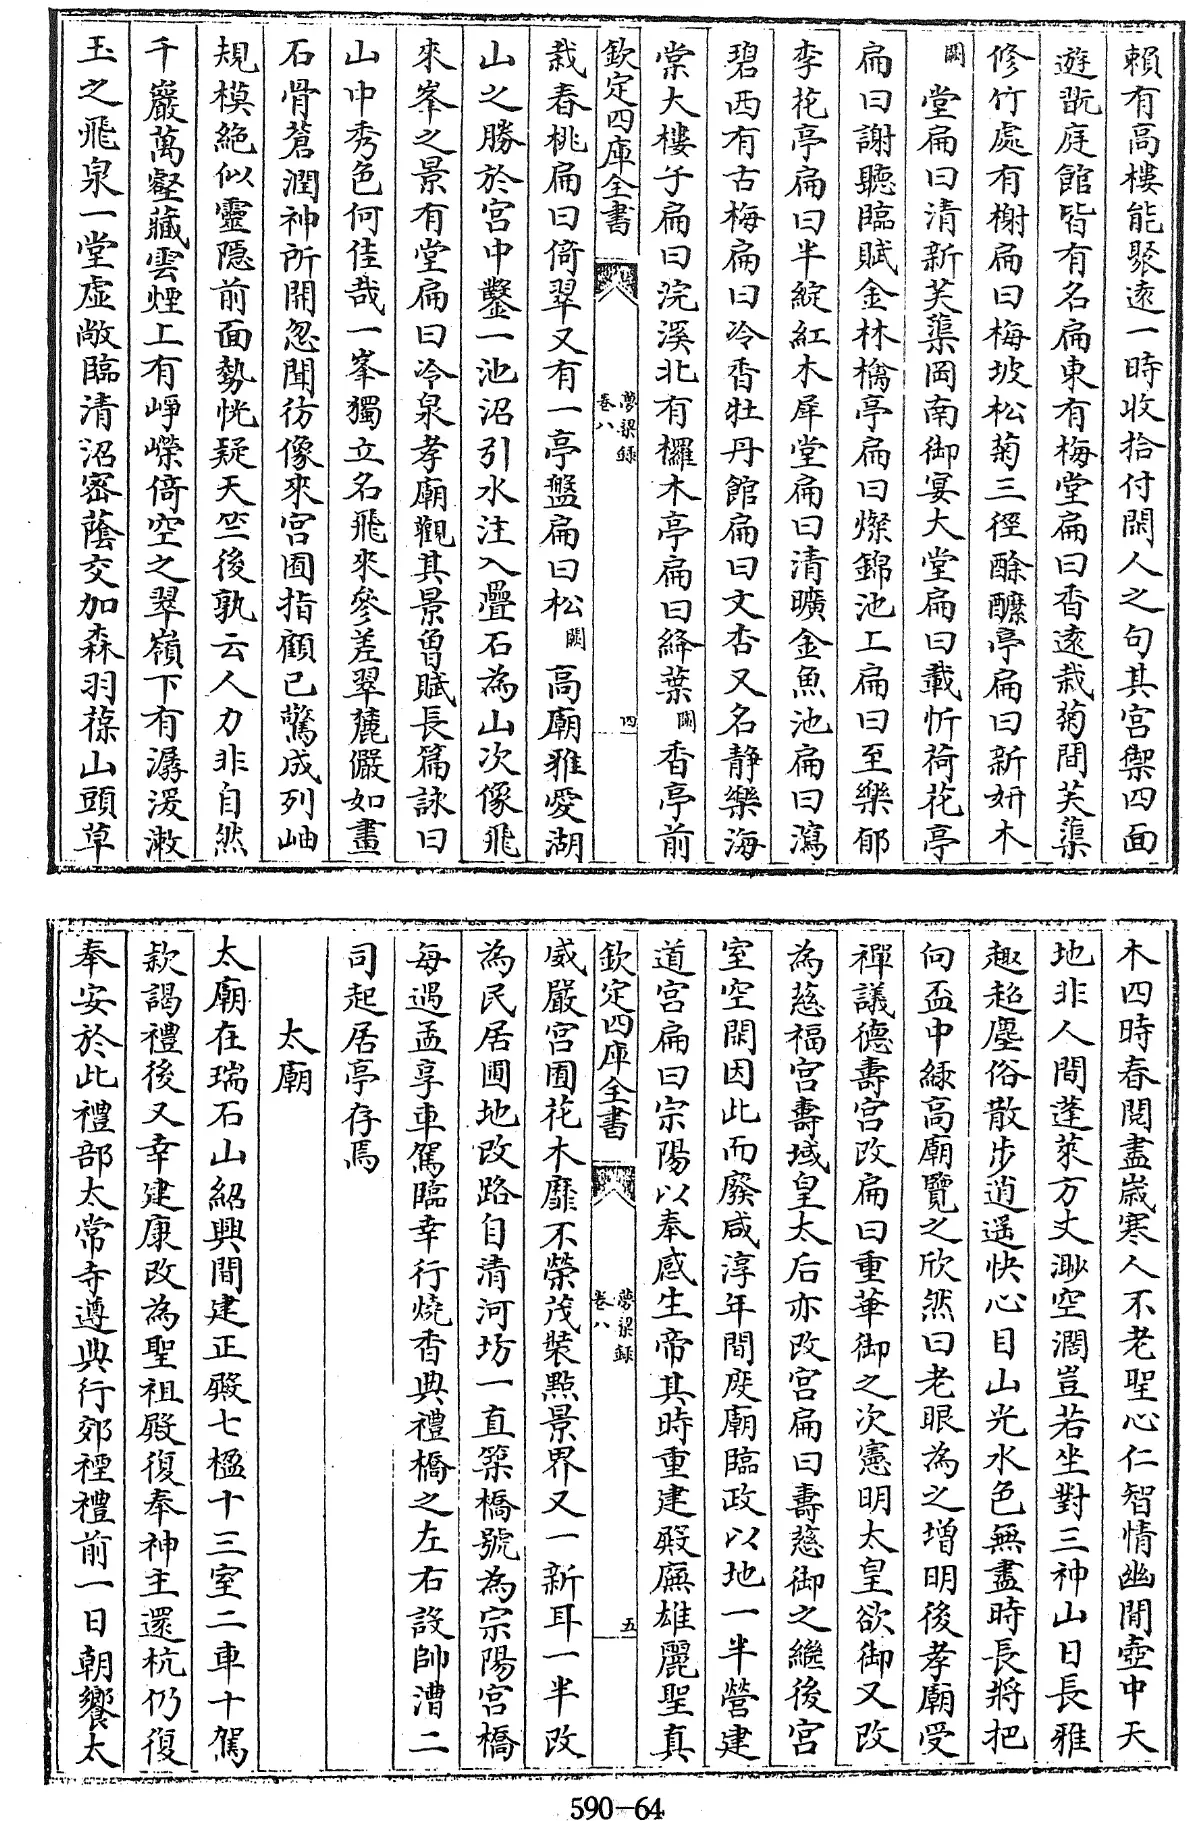 賴有高樓能聚遠一時收拾付閒人之句其宮禦四面
遊翫庭館皆有名扁東有梅堂扁曰香遠栽菊間芙蕖
修竹處有榭扁曰梅坡松菊三徑酴醿亭扁曰新妍木
闕堂扁曰清新芙蕖岡南御宴大堂扁曰載忻荷花亭
扁曰謝聽臨賦金林檎亭扁曰燦錦池上扁曰至樂郁
李花亭扁曰半綻紅木犀堂扁曰清曠金魚池扁曰瀉
碧西有古梅扁曰冷香牡丹館扁曰文杏又名靜樂海
棠大樓子扁曰浣溪北有欏木亭扁曰絳葉闕香亭前
欽定四庫全書 夢粱錄 卷八 四
栽春桃扁曰倚翠又有一亭盤扁曰松闕高廟雅愛湖
山之勝於宮中鑿一池沼引水注入疊石為山次像飛
來峯之景有堂扁曰冷泉孝廟觀其景曾賦長篇詠曰
山中秀色何佳哉一峯獨立名飛來參差翠麓儼如畫
石骨蒼潤神所開忽聞彷像來宮囿指顧已驚成列岫
規模絶似靈隱前面勢恍疑天竺後孰云人力非自然
千巖萬壑藏雲煙上有崢嶸倚空之翠嶺下有潺湲漱
玉之飛泉一堂虛敞臨清沼密蔭交加森羽葆山頭草
木四時春閱盡歲寒人不老聖心仁智情幽閒壺中天
地非人間蓬萊方丈渺空濶豈若坐對三神山日長雅
趣超塵俗散步逍遥快心目山光水色無盡時長將把
向盃中緑高廟覽之欣然曰老眼為之增明後孝廟受
禪議德壽宮改扁曰重華御之次憲明太皇欲御又改
為慈福宮壽域皇太后亦改宮扁曰壽慈御之繼後宮
室空閒因此而廢咸淳年間度廟臨政以地一半營建
道宮扁曰宗陽以奉感生帝其時重建殿廡雄麗聖真
欽定四庫全書 夢粱錄 卷八 五
威嚴宮囿花木靡不榮茂裝點景界又一新耳一半改
為民居圃地改路自清河坊一直築橋號為宗陽宮橋
每遇孟享車駕臨幸行燒香典禮橋之左右設帥漕二
司起居亭存焉
太廟
太廟在瑞石山紹興間建正殿七楹十三室二車十駕
款謁禮後又幸建康改為聖祖殿復奉神主還杭仍復
奉安於此禮部太常寺遵典行郊禋禮前一日朝饗太
590-64